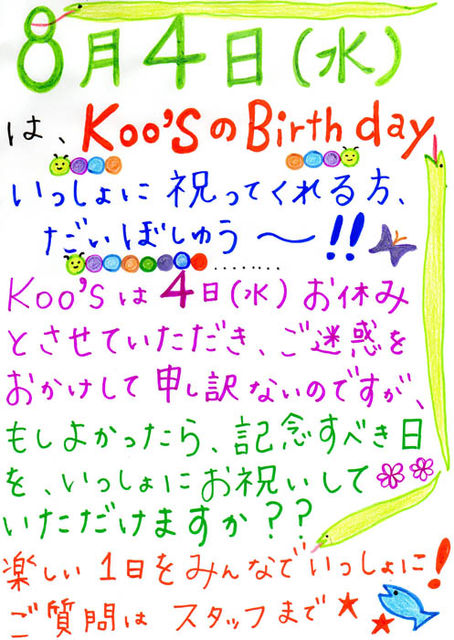 8月4日(水)
は、Koo'SのBirthday
いっしょに祝ってくれる方、
だいぼしゅう〜!!
........
Koo'Sは4日(水)お休み
とさせていただき、ご迷惑を
おかけして申し訳ないのですが、
もしよかったら、記念すべき日
を、いっしょにお祝いして
いただけますか??
楽しい1日をみんなでいっしょに!
ご質問はスタッフまで★★